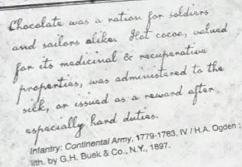 Chocolate was a ration for soldiers
and sailors alike. Hot cocoa, valued
for its medicinal & recuperative
properties, was administered to the
sick, or issued as a reward after
especially hard duties.
Infantry: Continental Army, 1779-1783, IV / H.A. Ogden ;
lith. by G.H. Buek & Co., N.Y., 1897.